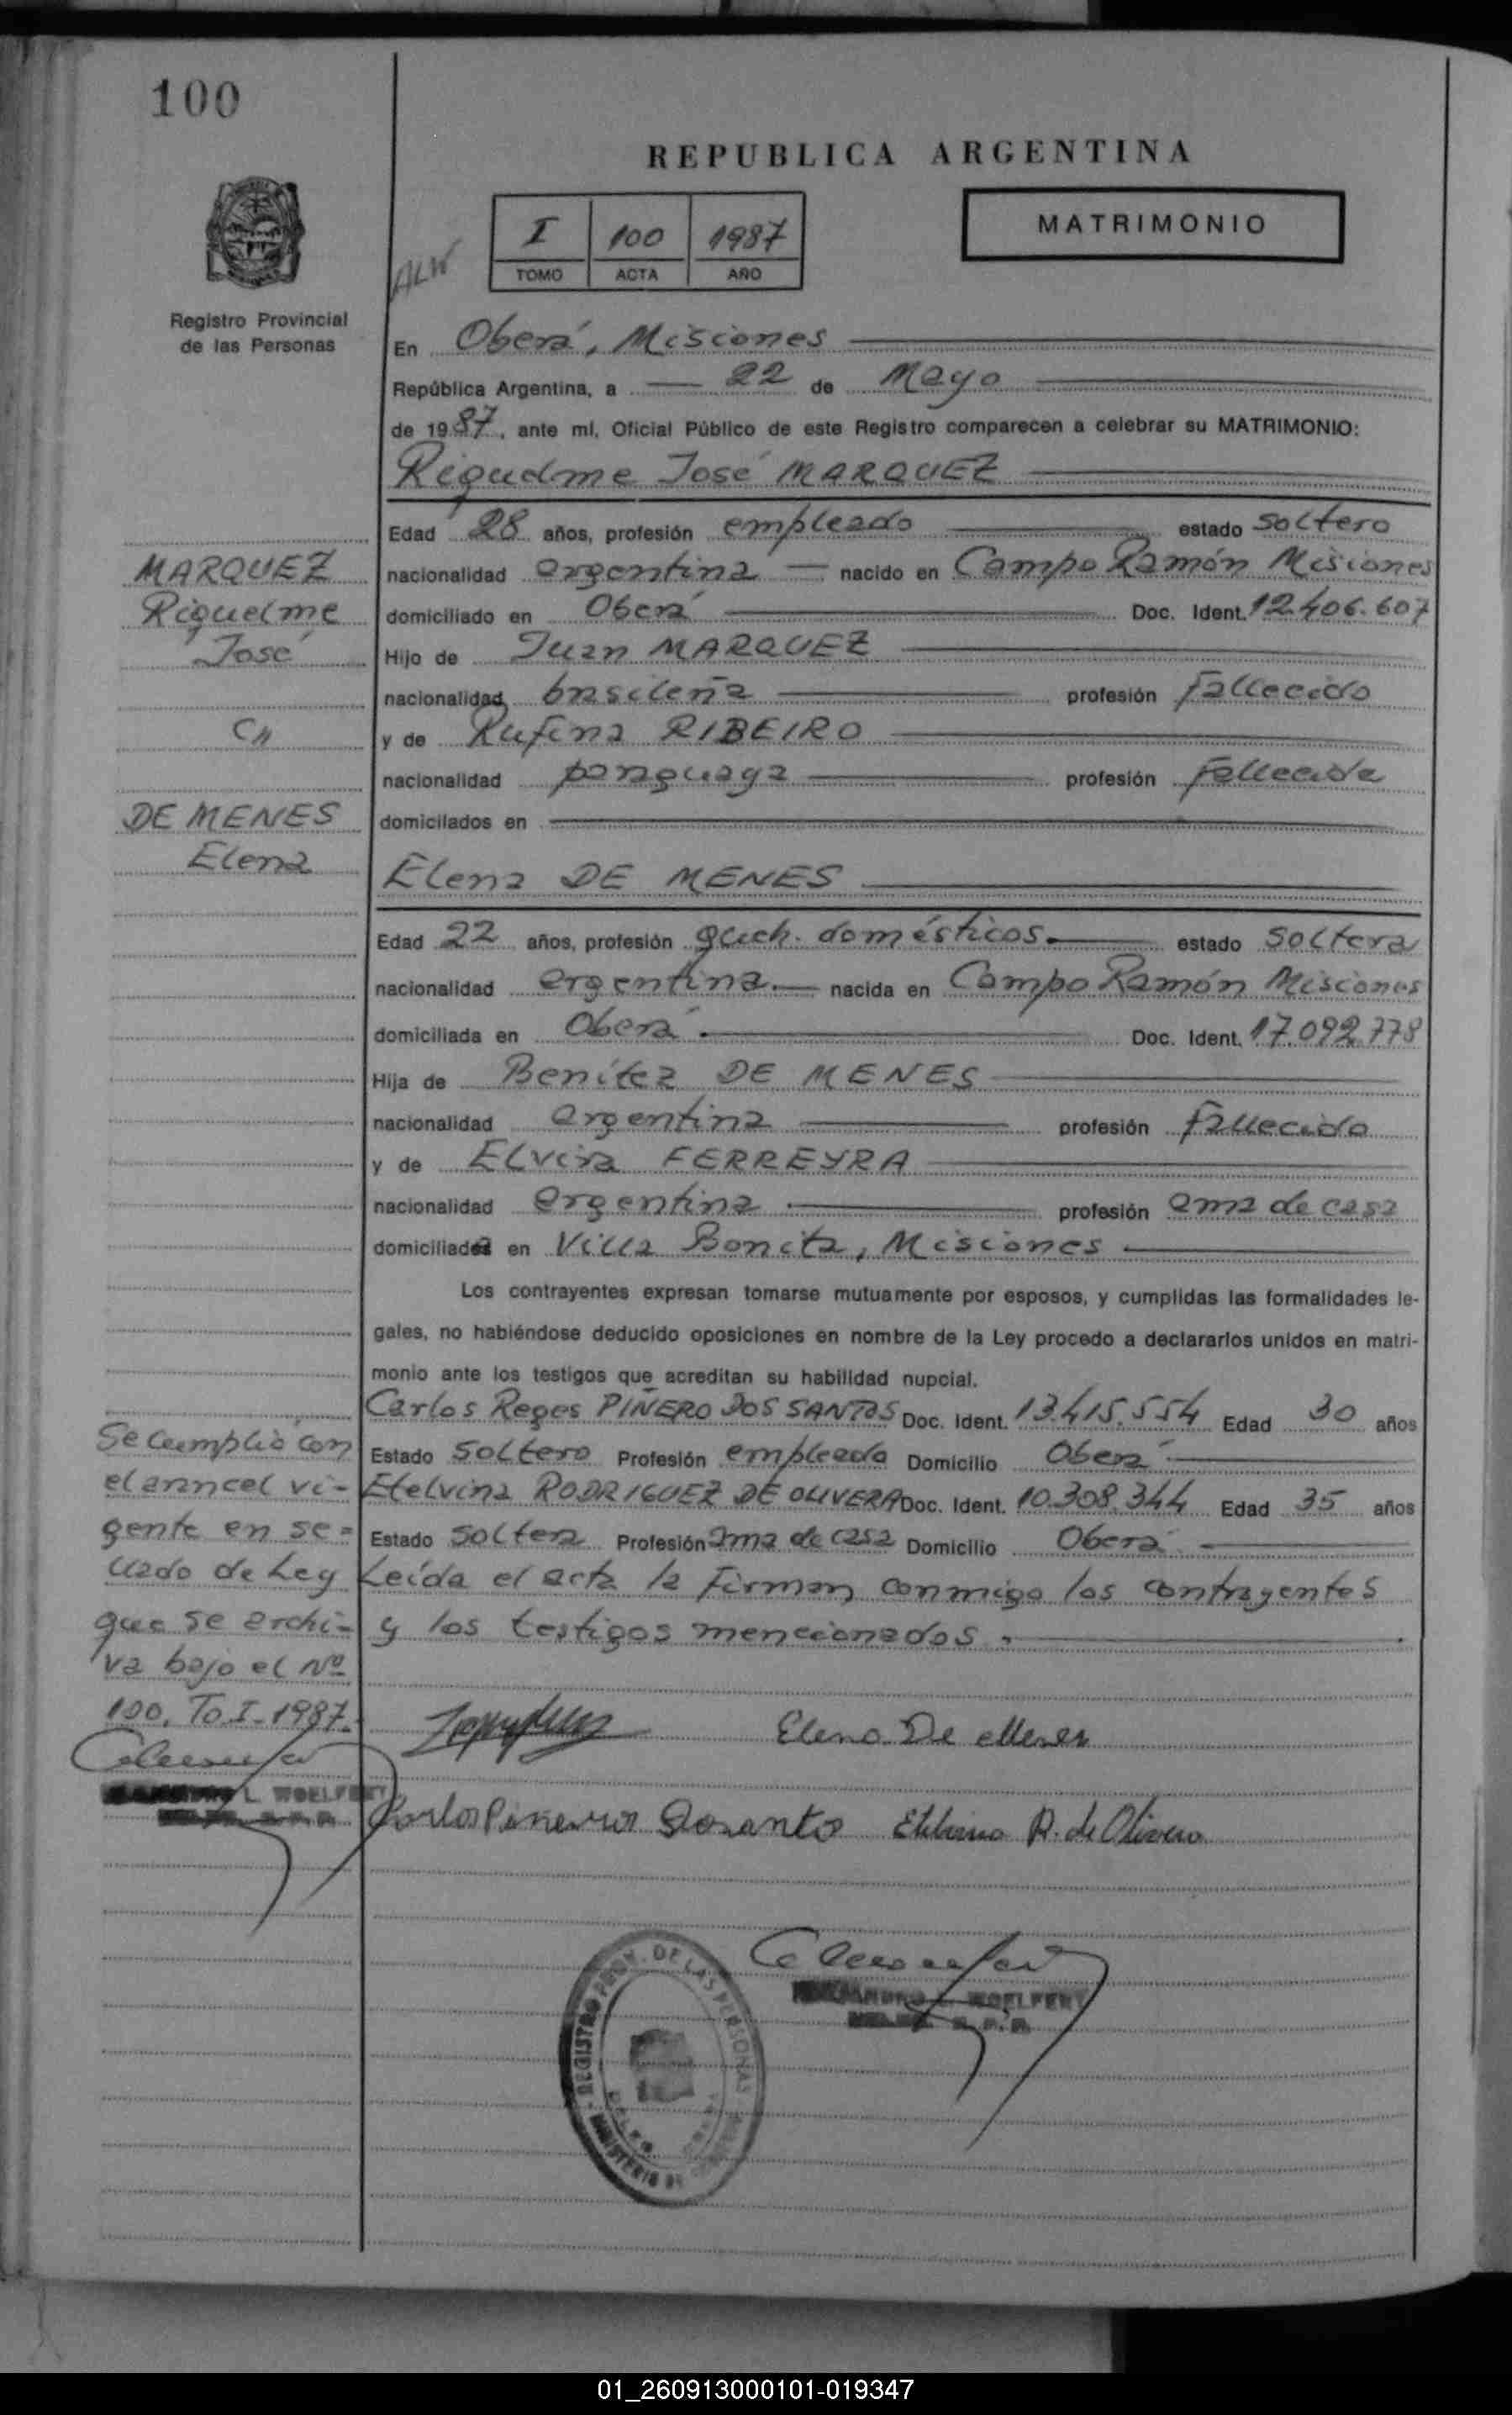 100
REPUBLICA ARGENTINA
I 100 1987
TOMO ACTA AÑO
MATRIMONIO
ALW
Registro Provincial
de las Personas
En Oberá, Misiones
República Argentina, a 22 de Mayo
de 1987, ante mí, Oficial Público de este Registro comparecen a celebrar su MATRIMONIO:
Riquelme José MARQUEZ
Edad 28 años, profesión empleado estado soltero
nacionalidad argentina nacido en Campo Ramón Misiones
domiciliado en Oberá Doc. Ident. 12.406.607
Hijo de Juan MARQUEZ
nacionalidad brasileña profesión fallecido
y de Rufina RIBEIRO
nacionalidad paraguaya profesión fallecida
domicilados en
MARQUEZ
Riquelme
José
C//
DE MENES
Elena
Elena DE MENES
Edad 22 años, profesión queh. domésticos. estado soltera
nacionalidad argentina. nacida en Campo Ramón Misiones
domiciliada en Oberá. Doc. Ident. 17.092.778
Hija de Benítez DE MENES
nacionalidad argentina profesión fallecido
y de Elvira FERREYRA
nacionalidad argentina profesión ama de casa
domiciliada en Villa Bonita, Misiones
Los contrayentes expresan tomarse mutuamente por esposos, y cumplidas las formalidades le-
gales, no habiéndose deducido oposiciones en nombre de la Ley procedo a declararlos unidos en matri-
monio ante los testigos que acreditan su habilidad nupcial.
Carlos Reges PIÑERO DOS SANTOS Doc. Ident. 13.415.554 Edad 30 años
Estado soltero Profesión empleado Domicilio Oberá
Etelvina RODRIGUEZ DE OLIVERA Doc. Ident. 10.308.344 Edad 35 años
Estado soltera Profesión ama de casa Domicilio Oberá
Leída el acta la firman conmigo los contrayentes
y los testigos mencionados.
Se cumplió con
el arancel vi-
gente en se-
llado de Ley
que se archi-
va bajo el Nº
100. To. I-1987.
Elena De Menes
L. WOELFERT
Carlos Pinero Dosanto Etelvina R. de Olivera
WOELFERT
REGISTRO PROV. DE LAS PERSONAS
MINISTERIO DE
01_260913000101-019347